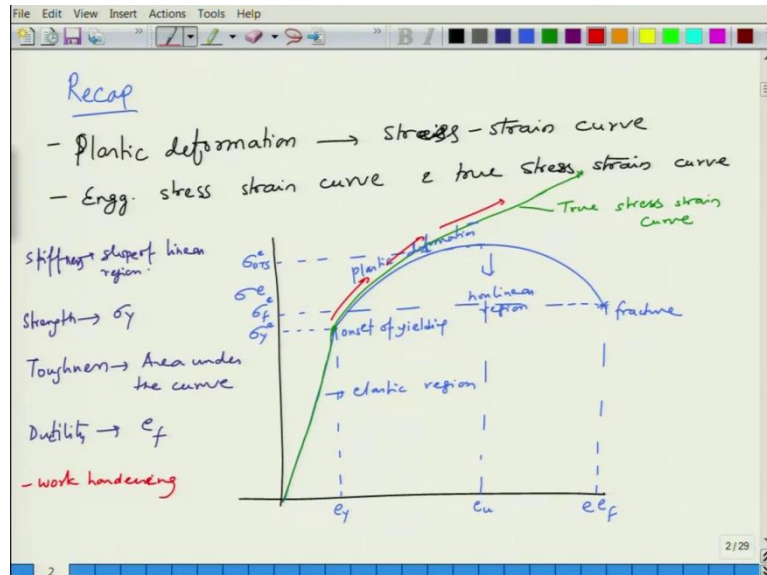 File Edit View Insert Actions Tools Help
Recap
- Plastic deformation → stress - strain curve
- Engg. stress strain curve & true stress strain curve
True stress strain
curve
Stiffness → slope of linear
region.
Strength → σy
Toughness → Area under
the curve
Ductility → ef
- work hardening
σeUTS
σe
σef
σey
plastic deformation
nonlinear
region
onset of yielding
fracture
elastic region
ey
eu
e ef
2/29
2